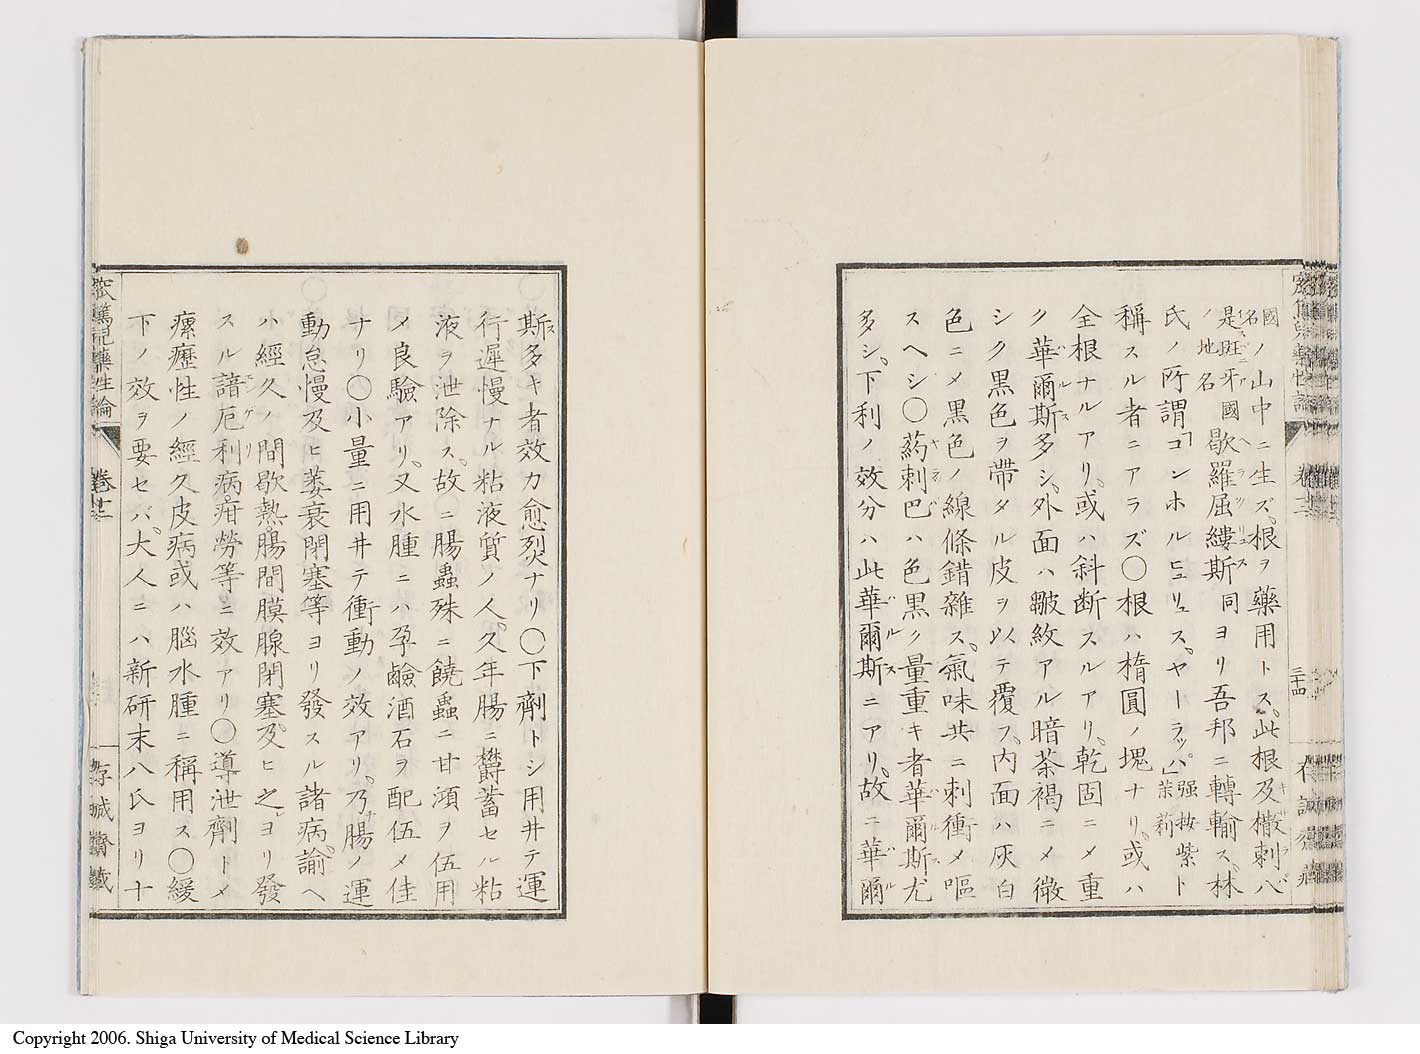 國ノ山中ニ生ズ、根ヲ藥用トス、此根及㯙刺八
名是斑牙國歇羅屈縷斯同ヨリ吾邦ニ轉輸ス、林
ノ地名
氏ノ所謂「コンホルヒュリュス、ヤーラッパ」強按紫茉莉ト
稱スル者ニアラズ〇根ハ楕圓ノ塊ナリ、或ハ
全根ナルアリ、或ハ斜断スルアリ、乾固ニメ重
ク華爾斯多シ、外面ハ皺紋アル暗茶褐ニメ微
シク黒色ヲ帶タル皮ヲ以テ覆フ、内面ハ灰白
色ニメ黒色ノ線條錯雜ス、氣味共ニ刺衝メ嘔
スヘシ〇葯刺巴ハ色黒ク量重キ者華爾斯尤
多シ、下利ノ效分ハ此華爾斯ニアリ、故ニ華爾
卷十二
三十四
斯多キ者效力愈烈ナリ〇下劑トシ用井テ運
行遲慢ナル粘液質ノ人、久年腸ニ欝蓄セル粘
液ヲ泄除ス、故ニ腸蟲殊ニ蟯蟲ニ甘澒ヲ伍用
メ良驗アリ、又水腫ニハ孕鹼酒石ヲ配伍メ佳
ナリ〇小量ニ用井テ衝動ノ效アリ、乃腸ノ運
動怠慢及ヒ萎衰閉塞等ヨリ發スル諸病、諭ヘ
ハ經久ノ間歇熱、腸間膜腺閉塞、及ヒ之ヨリ發
スル諳厄利病、疳勞等ニ效アリ〇導泄劑トメ
瘰癧性ノ經久皮病或ハ腦水腫ニ稱用ス〇緩
下ノ效ヲ要セバ、大人ニハ新研末八氏ヨリ十
窊篤兒藥性論
卷十二
存誠齋蔵
Copyright 2006. Shiga University of Medical Science Library